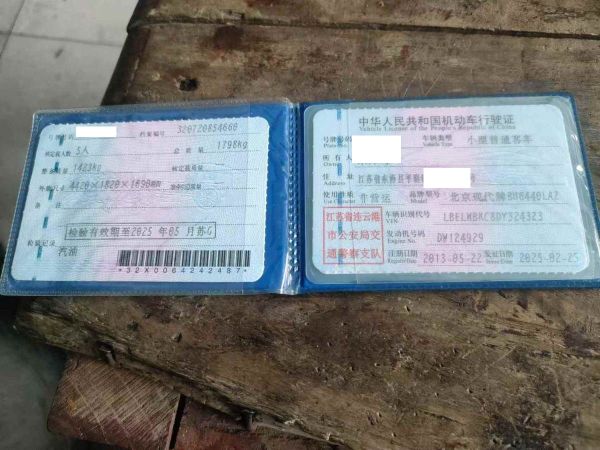 号牌号码
档案编号 320720854666
核定载人数 5人
总质量 1798kg
整备质量 1423kg
核定载质量
外廓尺寸 4420×1820×1690mm
准牵引总质量
备注
检验有效期至2025年05月苏G
检验记录
汽油
*32X0064242487*
中华人民共和国机动车行驶证
Vehicle License of the People's Republic of China
号牌号码
车辆类型 小型普通客车
Vehicle Type
所有人
住址 江苏省东海县
Address
使用性质 非营运
Use Character
品牌型号 北京现代牌
Model
江苏省连云港
市公安局交
通警察支队
车辆识别代号
VIN
发动机号码 DW124929
Engine No.
注册日期 2013-05-22
Register Date
发证日期 2025-02-25
Issue Date